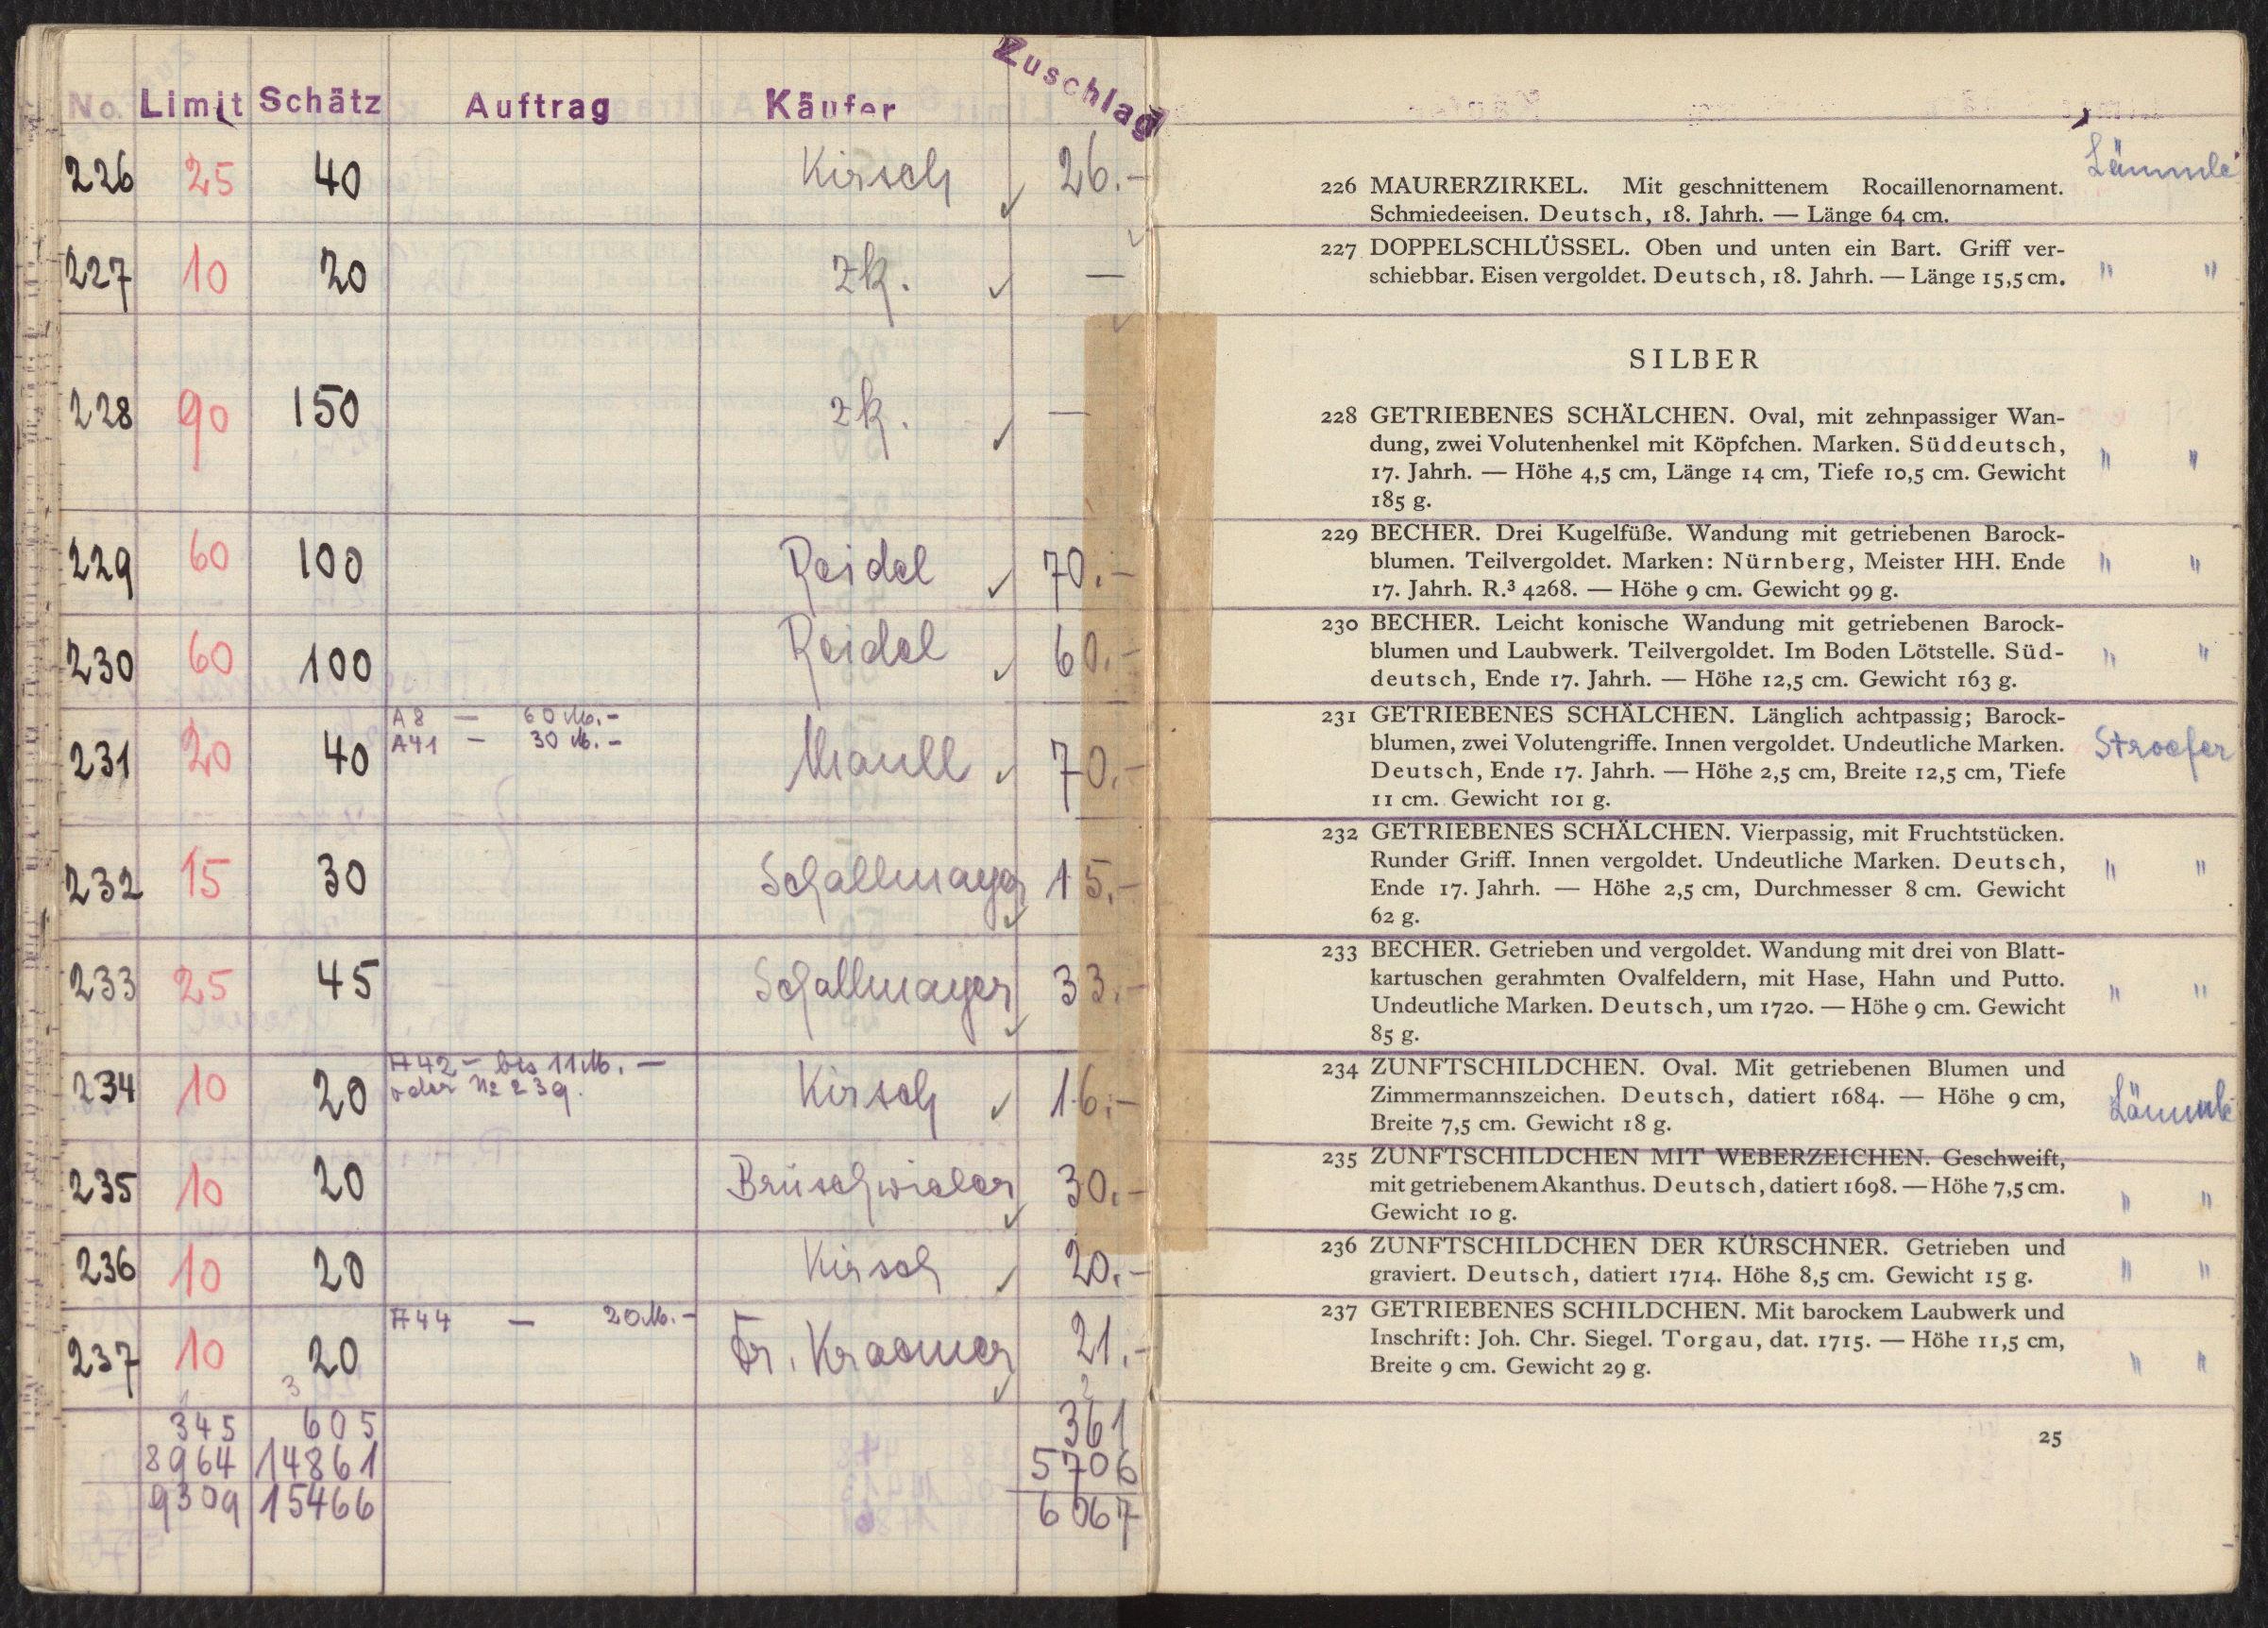 No. Limit Schätz Auftrag Käufer Zuschlag
226 25 40 Kirsch ✓ 26.-
227 10 20 zk. ✓ —
228 90 150 zk. ✓ —
229 60 100 Reidel ✓ 70.-
230 60 100 Reidel ✓ 60.-
A8 — 60 M.-
231 20 40 A41 — 30 M.- Maull ✓ 70.-
232 15 30 Schallmayer ✓ 15.-
233 25 45 Schallmayer ✓ 33.-
A42 - bis 11 M. -
234 10 20 oder № 239. Kirsch ✓ 16.-
235 10 20 Brüschwieler ✓ 30.-
236 10 20 Kirsch ✓ 20.-
A44 — 20 M.-
237 10 20 Fr. Kraemer ✓ 21.-
345 605 361
8964 14861 5706
9309 15466 6067
Lämmle
226 MAURERZIRKEL. Mit geschnittenem Rocaillenornament.
Schmiedeeisen. Deutsch, 18. Jahrh. — Länge 64 cm.
227 DOPPELSCHLÜSSEL. Oben und unten ein Bart. Griff ver-
schiebbar. Eisen vergoldet. Deutsch, 18. Jahrh. — Länge 15,5 cm. " "
SILBER
228 GETRIEBENES SCHÄLCHEN. Oval, mit zehnpassiger Wan-
dung, zwei Volutenhenkel mit Köpfchen. Marken. Süddeutsch, " "
17. Jahrh. — Höhe 4,5 cm, Länge 14 cm, Tiefe 10,5 cm. Gewicht
185 g.
229 BECHER. Drei Kugelfüße. Wandung mit getriebenen Barock-
blumen. Teilvergoldet. Marken: Nürnberg, Meister HH. Ende " "
17. Jahrh. R.³ 4268. — Höhe 9 cm. Gewicht 99 g.
230 BECHER. Leicht konische Wandung mit getriebenen Barock-
blumen und Laubwerk. Teilvergoldet. Im Boden Lötstelle. Süd- " "
deutsch, Ende 17. Jahrh. — Höhe 12,5 cm. Gewicht 163 g.
231 GETRIEBENES SCHÄLCHEN. Länglich achtpassig; Barock-
blumen, zwei Volutengriffe. Innen vergoldet. Undeutliche Marken. Stroefer
Deutsch, Ende 17. Jahrh. — Höhe 2,5 cm, Breite 12,5 cm, Tiefe
11 cm. Gewicht 101 g.
232 GETRIEBENES SCHÄLCHEN. Vierpassig, mit Fruchtstücken.
Runder Griff. Innen vergoldet. Undeutliche Marken. Deutsch, " "
Ende 17. Jahrh. — Höhe 2,5 cm, Durchmesser 8 cm. Gewicht
62 g.
233 BECHER. Getrieben und vergoldet. Wandung mit drei von Blatt-
kartuschen gerahmten Ovalfeldern, mit Hase, Hahn und Putto.
Undeutliche Marken. Deutsch, um 1720. — Höhe 9 cm. Gewicht " "
85 g.
234 ZUNFTSCHILDCHEN. Oval. Mit getriebenen Blumen und
Zimmermannszeichen. Deutsch, datiert 1684. — Höhe 9 cm, Lämmle
Breite 7,5 cm. Gewicht 18 g.
235 ZUNFTSCHILDCHEN MIT WEBERZEICHEN. Geschweift,
mit getriebenem Akanthus. Deutsch, datiert 1698. — Höhe 7,5 cm. " "
Gewicht 10 g.
236 ZUNFTSCHILDCHEN DER KÜRSCHNER. Getrieben und
graviert. Deutsch, datiert 1714. Höhe 8,5 cm. Gewicht 15 g. " "
237 GETRIEBENES SCHILDCHEN. Mit barockem Laubwerk und
Inschrift: Joh. Chr. Siegel. Torgau, dat. 1715. — Höhe 11,5 cm,
Breite 9 cm. Gewicht 29 g. " "
25